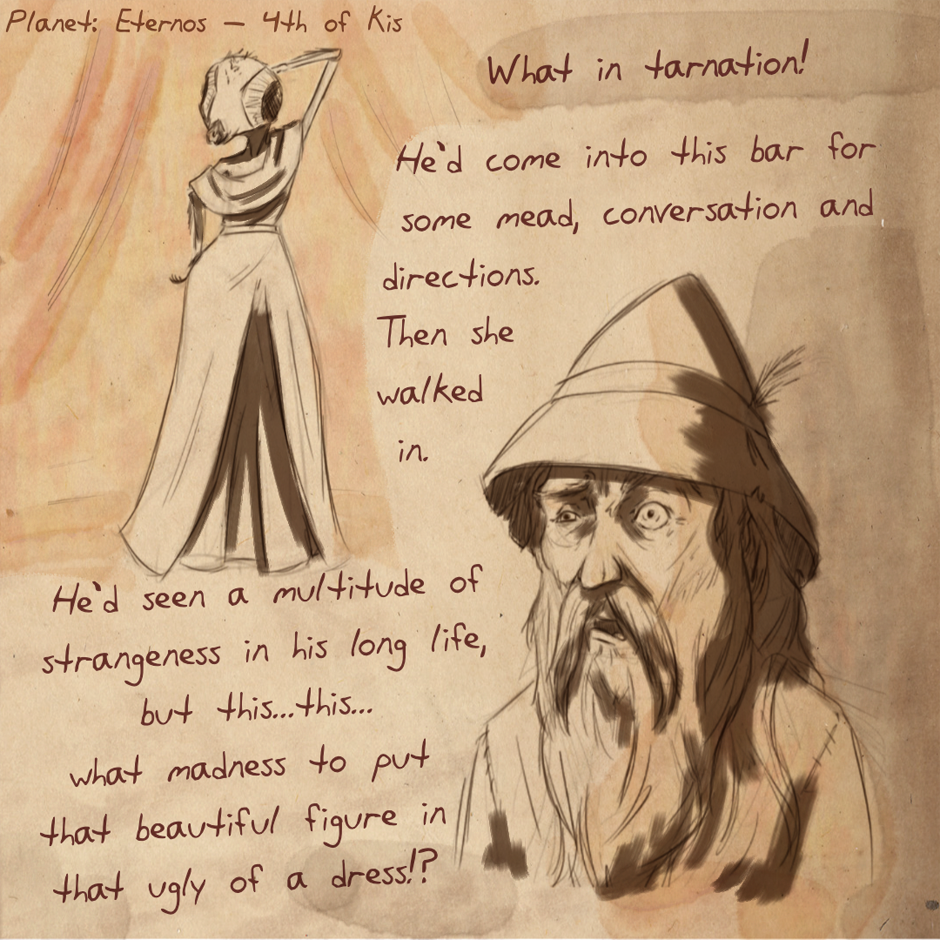 Planet: Eternos — 4th of Kis
What in tarnation!
He'd come into this bar for
some mead, conversation and
directions.
Then she
walked
in.
He'd seen a multitude of
strangeness in his long life,
but this...this...
what madness to put
that beautiful figure in
that ugly of a dress!?